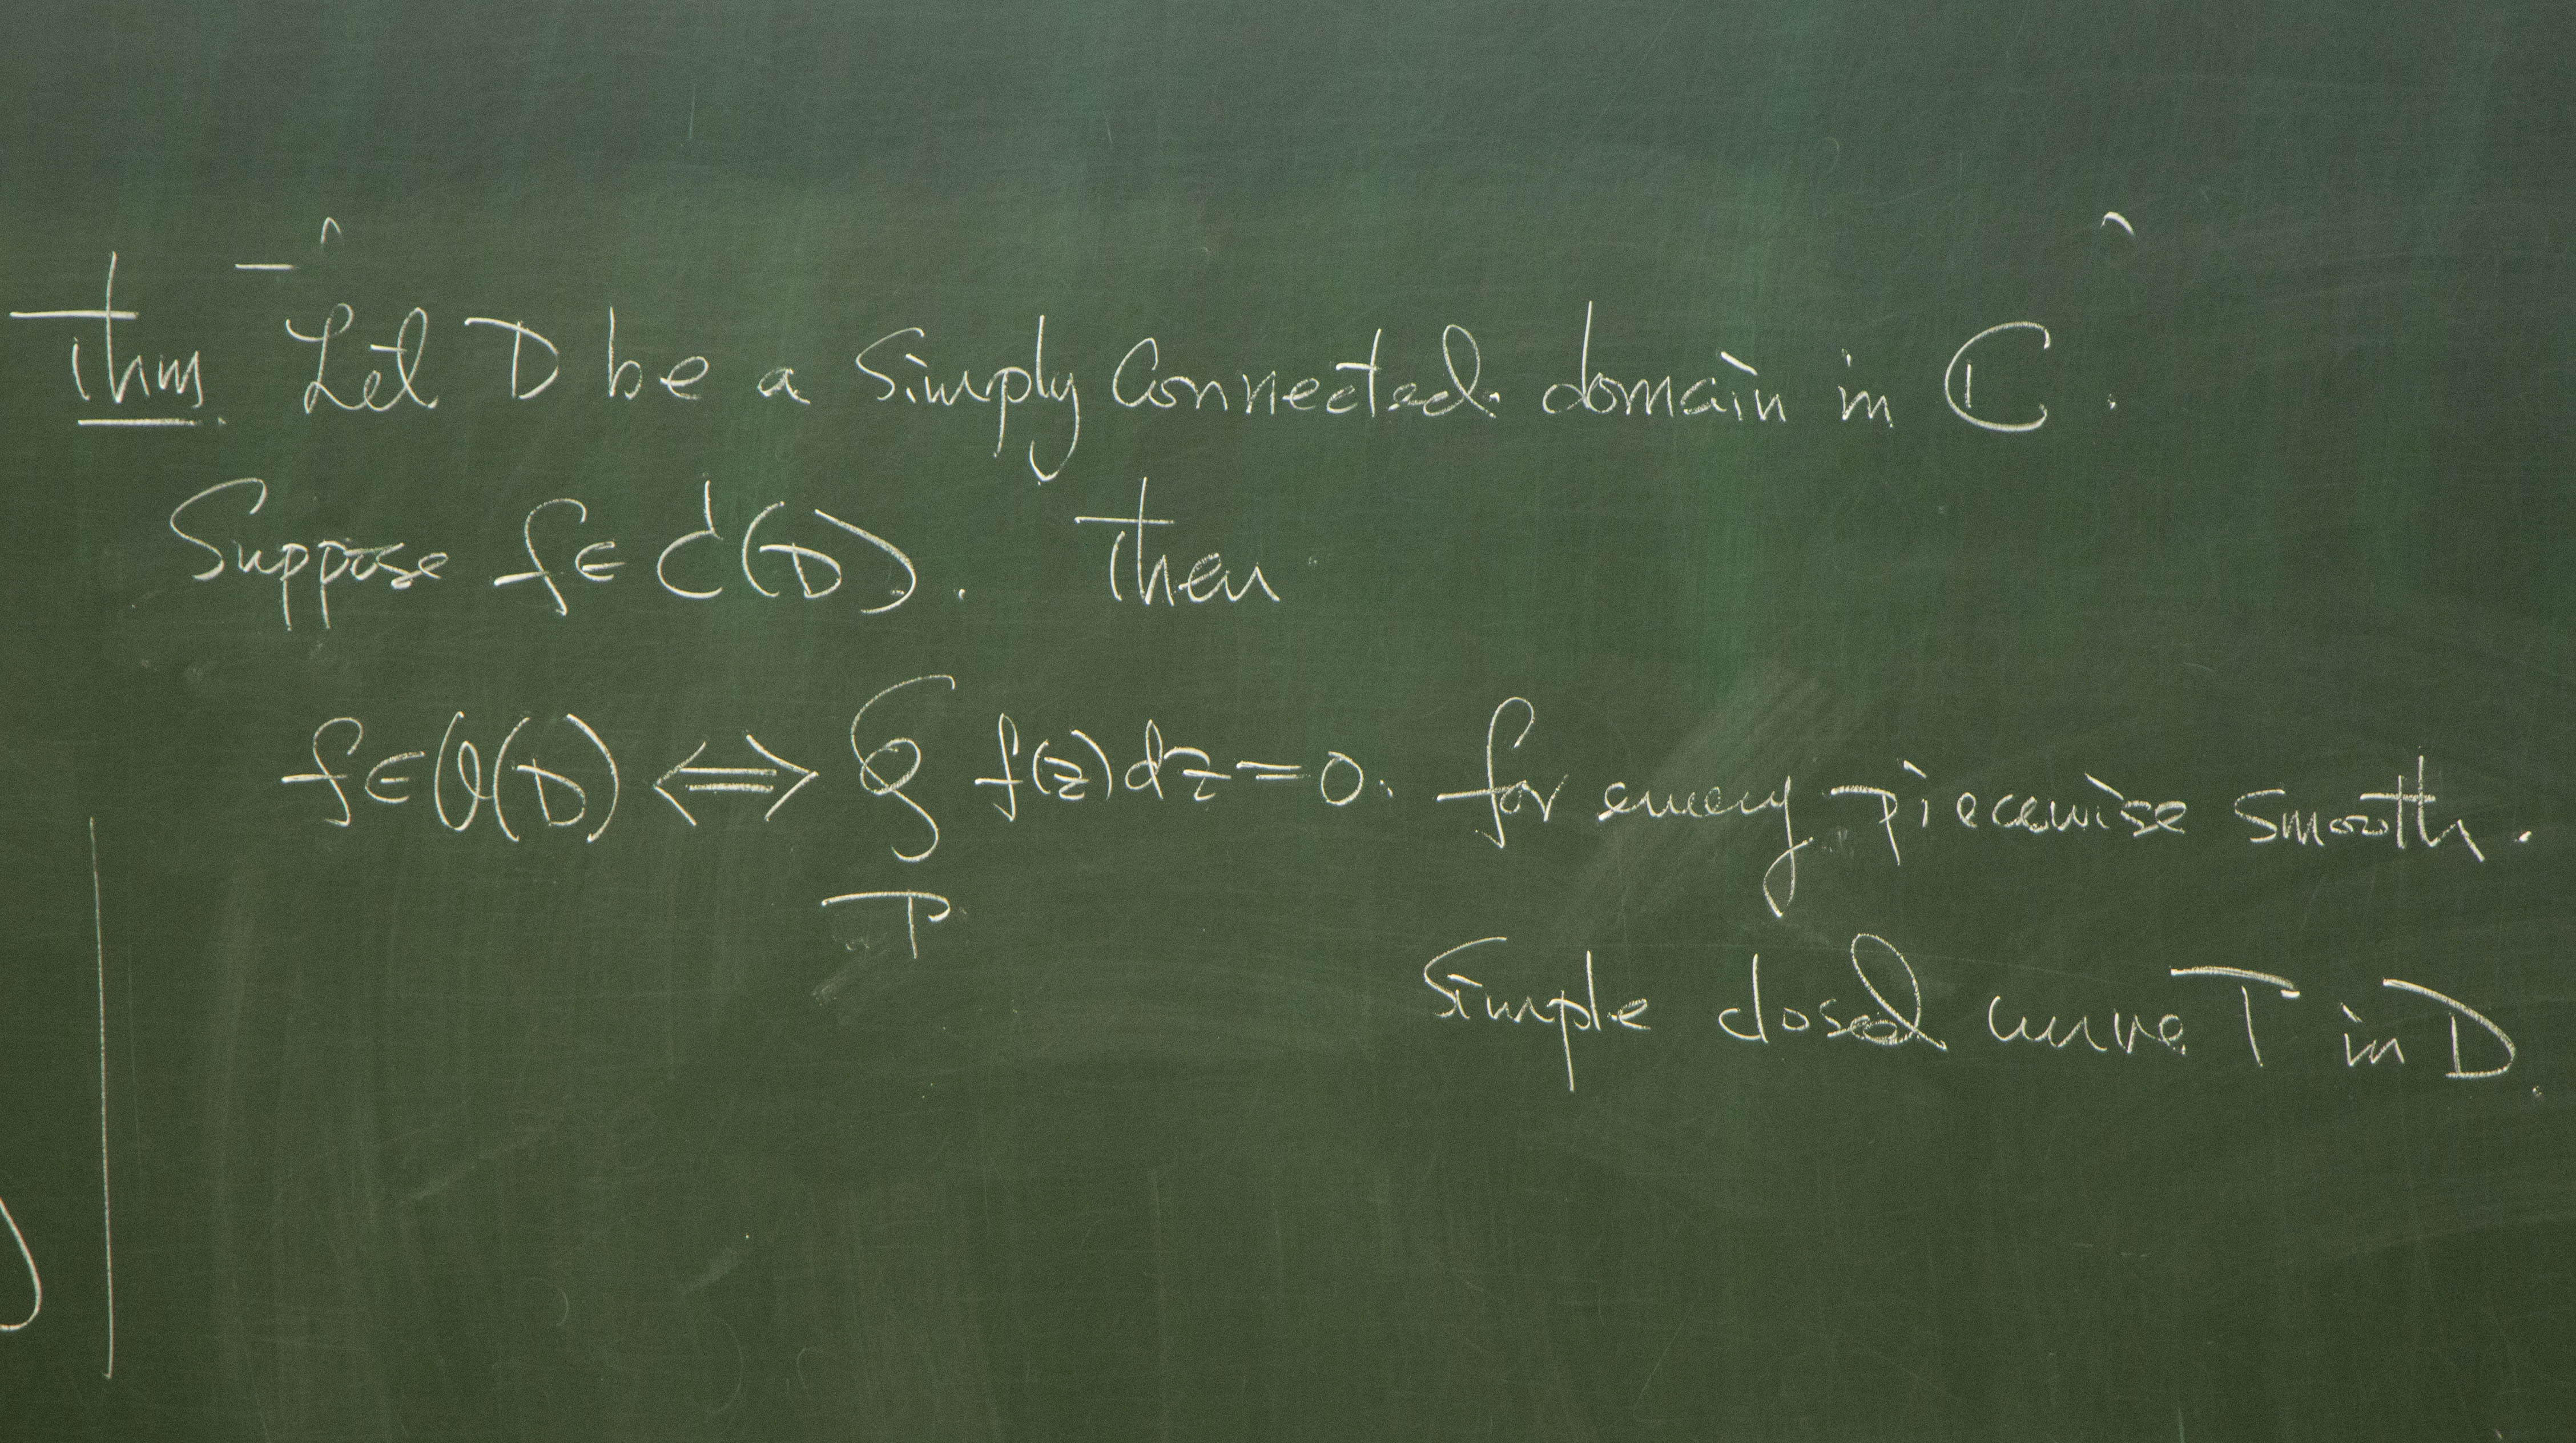 Thm. Let D be a Simply Connected domain in ℂ.
Suppose f ∈ C¹(D). Then
f ∈ O(D) ⟺ ∮_Γ f(z)dz = 0. for every piecewise smooth.
Simple closed curve Γ in D.